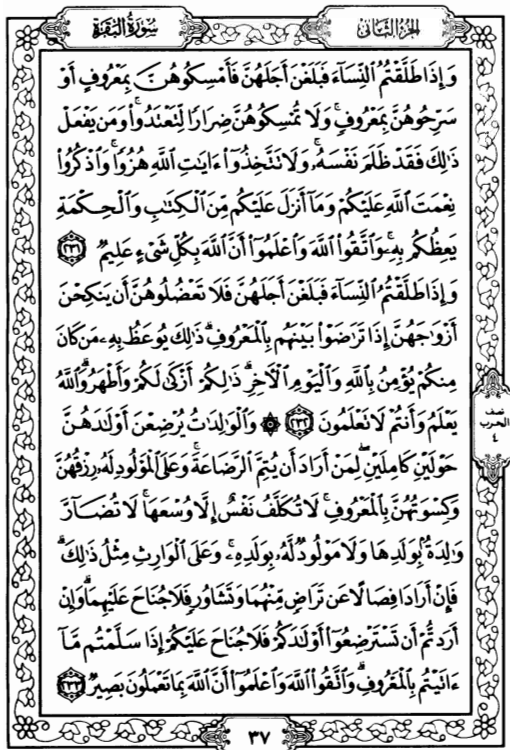 سورة البقرة
الجزء الثاني
وَإِذَا طَلَّقْتُمُ ٱلنِّسَآءَ فَبَلَغْنَ أَجَلَهُنَّ فَأَمْسِكُوهُنَّ بِمَعْرُوفٍ أَوْ
سَرِّحُوهُنَّ بِمَعْرُوفٍۚ وَلَا تُمْسِكُوهُنَّ ضِرَارًا لِّتَعْتَدُوا۟ۚ وَمَن يَفْعَلْ
ذَٰلِكَ فَقَدْ ظَلَمَ نَفْسَهُۥۚ وَلَا تَتَّخِذُوٓا۟ ءَايَٰتِ ٱللَّهِ هُزُوًاۚ وَٱذْكُرُوا۟
نِعْمَتَ ٱللَّهِ عَلَيْكُمْ وَمَآ أَنزَلَ عَلَيْكُم مِّنَ ٱلْكِتَٰبِ وَٱلْحِكْمَةِ
يَعِظُكُم بِهِۦۚ وَٱتَّقُوا۟ ٱللَّهَ وَٱعْلَمُوٓا۟ أَنَّ ٱللَّهَ بِكُلِّ شَىْءٍ عَلِيمٌ ٢٣١
وَإِذَا طَلَّقْتُمُ ٱلنِّسَآءَ فَبَلَغْنَ أَجَلَهُنَّ فَلَا تَعْضُلُوهُنَّ أَن يَنكِحْنَ
أَزْوَٰجَهُنَّ إِذَا تَرَٰضَوْا۟ بَيْنَهُم بِٱلْمَعْرُوفِۗ ذَٰلِكَ يُوعَظُ بِهِۦ مَن كَانَ
مِنكُمْ يُؤْمِنُ بِٱللَّهِ وَٱلْيَوْمِ ٱلْءَاخِرِۗ ذَٰلِكُمْ أَزْكَىٰ لَكُمْ وَأَطْهَرُۗ وَٱللَّهُ
يَعْلَمُ وَأَنتُمْ لَا تَعْلَمُونَ ٢٣٢ ۞ وَٱلْوَٰلِدَٰتُ يُرْضِعْنَ أَوْلَٰدَهُنَّ
حَوْلَيْنِ كَامِلَيْنِۖ لِمَنْ أَرَادَ أَن يُتِمَّ ٱلرَّضَاعَةَۚ وَعَلَى ٱلْمَوْلُودِ لَهُۥ رِزْقُهُنَّ
وَكِسْوَتُهُنَّ بِٱلْمَعْرُوفِۚ لَا تُكَلَّفُ نَفْسٌ إِلَّا وُسْعَهَاۚ لَا تُضَآرَّ
وَٰلِدَةٌۢ بِوَلَدِهَا وَلَا مَوْلُودٌ لَّهُۥ بِوَلَدِهِۦۚ وَعَلَى ٱلْوَارِثِ مِثْلُ ذَٰلِكَۗ
فَإِنْ أَرَادَا فِصَالًا عَن تَرَاضٍ مِّنْهُمَا وَتَشَاوُرٍ فَلَا جُنَاحَ عَلَيْهِمَاۗ وَإِنْ
أَرَدتُّمْ أَن تَسْتَرْضِعُوٓا۟ أَوْلَٰدَكُمْ فَلَا جُنَاحَ عَلَيْكُمْ إِذَا سَلَّمْتُم مَّآ
ءَاتَيْتُم بِٱلْمَعْرُوفِۗ وَٱتَّقُوا۟ ٱللَّهَ وَٱعْلَمُوٓا۟ أَنَّ ٱللَّهَ بِمَا تَعْمَلُونَ بَصِيرٌ ٢٣٣
نصف
الحزب
٤
٣٧